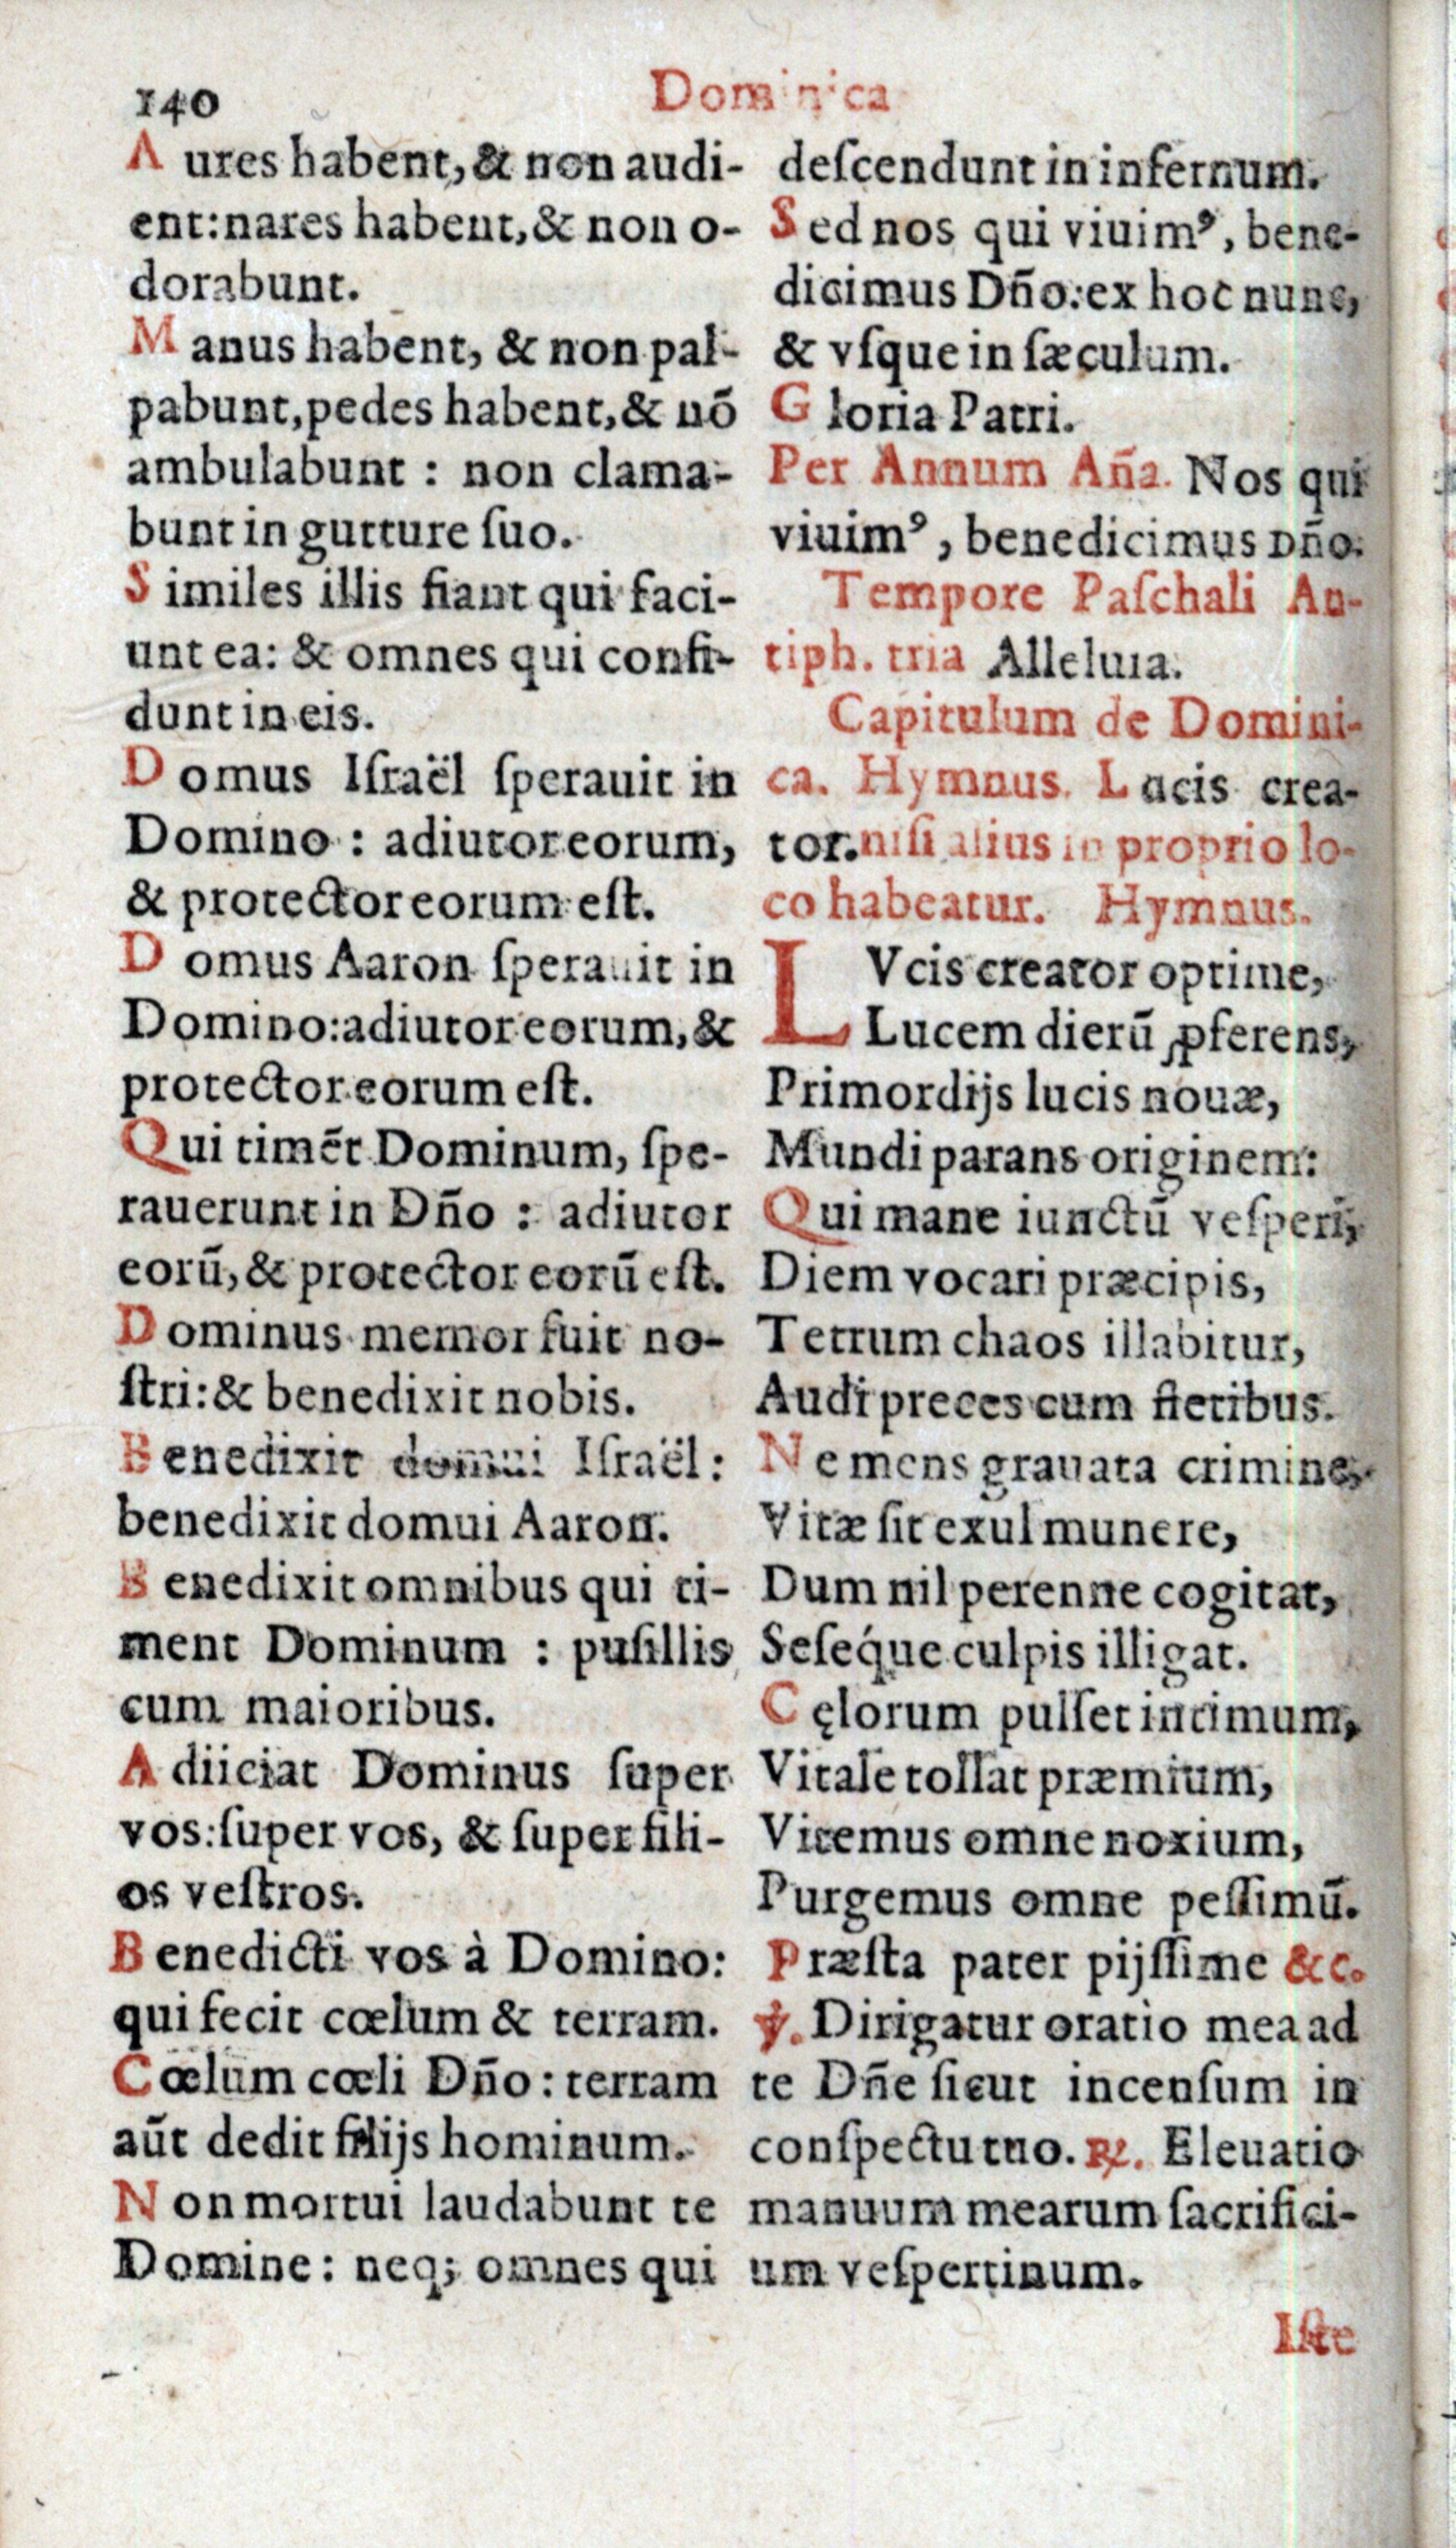 140
Dominica
Aures habent, & non audi-
ent: nares habent, & non o-
dorabunt.
Manus habent, & non pal-
pabunt, pedes habent, & nō
ambulabunt : non clama-
bunt in gutture ſuo.
Similes illis fiant qui faci-
unt ea: & omnes qui confi-
dunt in eis.
Domus Iſraël ſperauit in
Domino : adiutor eorum,
& protector eorum eſt.
Domus Aaron ſperauit in
Domino: adiutor eorum, &
protector eorum eſt.
Qui timēt Dominum, ſpe-
rauerunt in Dño : adiutor
eorū, & protector eorū eſt.
Dominus memor fuit no-
ſtri: & benedixit nobis.
Benedixit domui Iſraël:
benedixit domui Aaron.
Benedixit omnibus qui ti-
ment Dominum : puſillis
cum maioribus.
Adiiciat Dominus ſuper
vos: ſuper vos, & ſuper fili-
os veſtros.
Benedicti vos à Domino:
qui fecit cœlum & terram.
Cœlum cœli Dño: terram
aūt dedit filijs hominum.
Non mortui laudabunt te
Domine: neq; omnes qui
deſcendunt in infernum.
Sed nos qui viuimꝰ, bene-
dicimus Dño: ex hoc nunc,
& vſque in ſæculum.
Gloria Patri.
Per Annum Aña. Nos qui
viuimꝰ, benedicimus Dño.
Tempore Paſchali An-
tiph. tria Alleluia.
Capitulum de Domini-
ca. Hymnus. Lucis crea-
tor. niſi alius in proprio lo-
co habeatur. Hymnus.
LVcis creator optime,
Lucem dierū ꝓferens,
Primordijs lucis nouæ,
Mundi parans originem:
Qui mane iunctū veſperi,
Diem vocari præcipis,
Tetrum chaos illabitur,
Audi preces cum fletibus.
Ne mens grauata crimine,
Vitæ ſit exul munere,
Dum nil perenne cogitat,
Seſeq́ue culpis illigat.
Cęlorum pulſet intimum,
Vitale tollat præmium,
Vitemus omne noxium,
Purgemus omne peſſimū.
Præſta pater pijſſime &c.
℣. Dirigatur oratio mea ad
te Dñe ſicut incenſum in
conſpectu tuo. ℟. Eleuatio
manuum mearum ſacrifici-
um veſpertinum.
Iſte